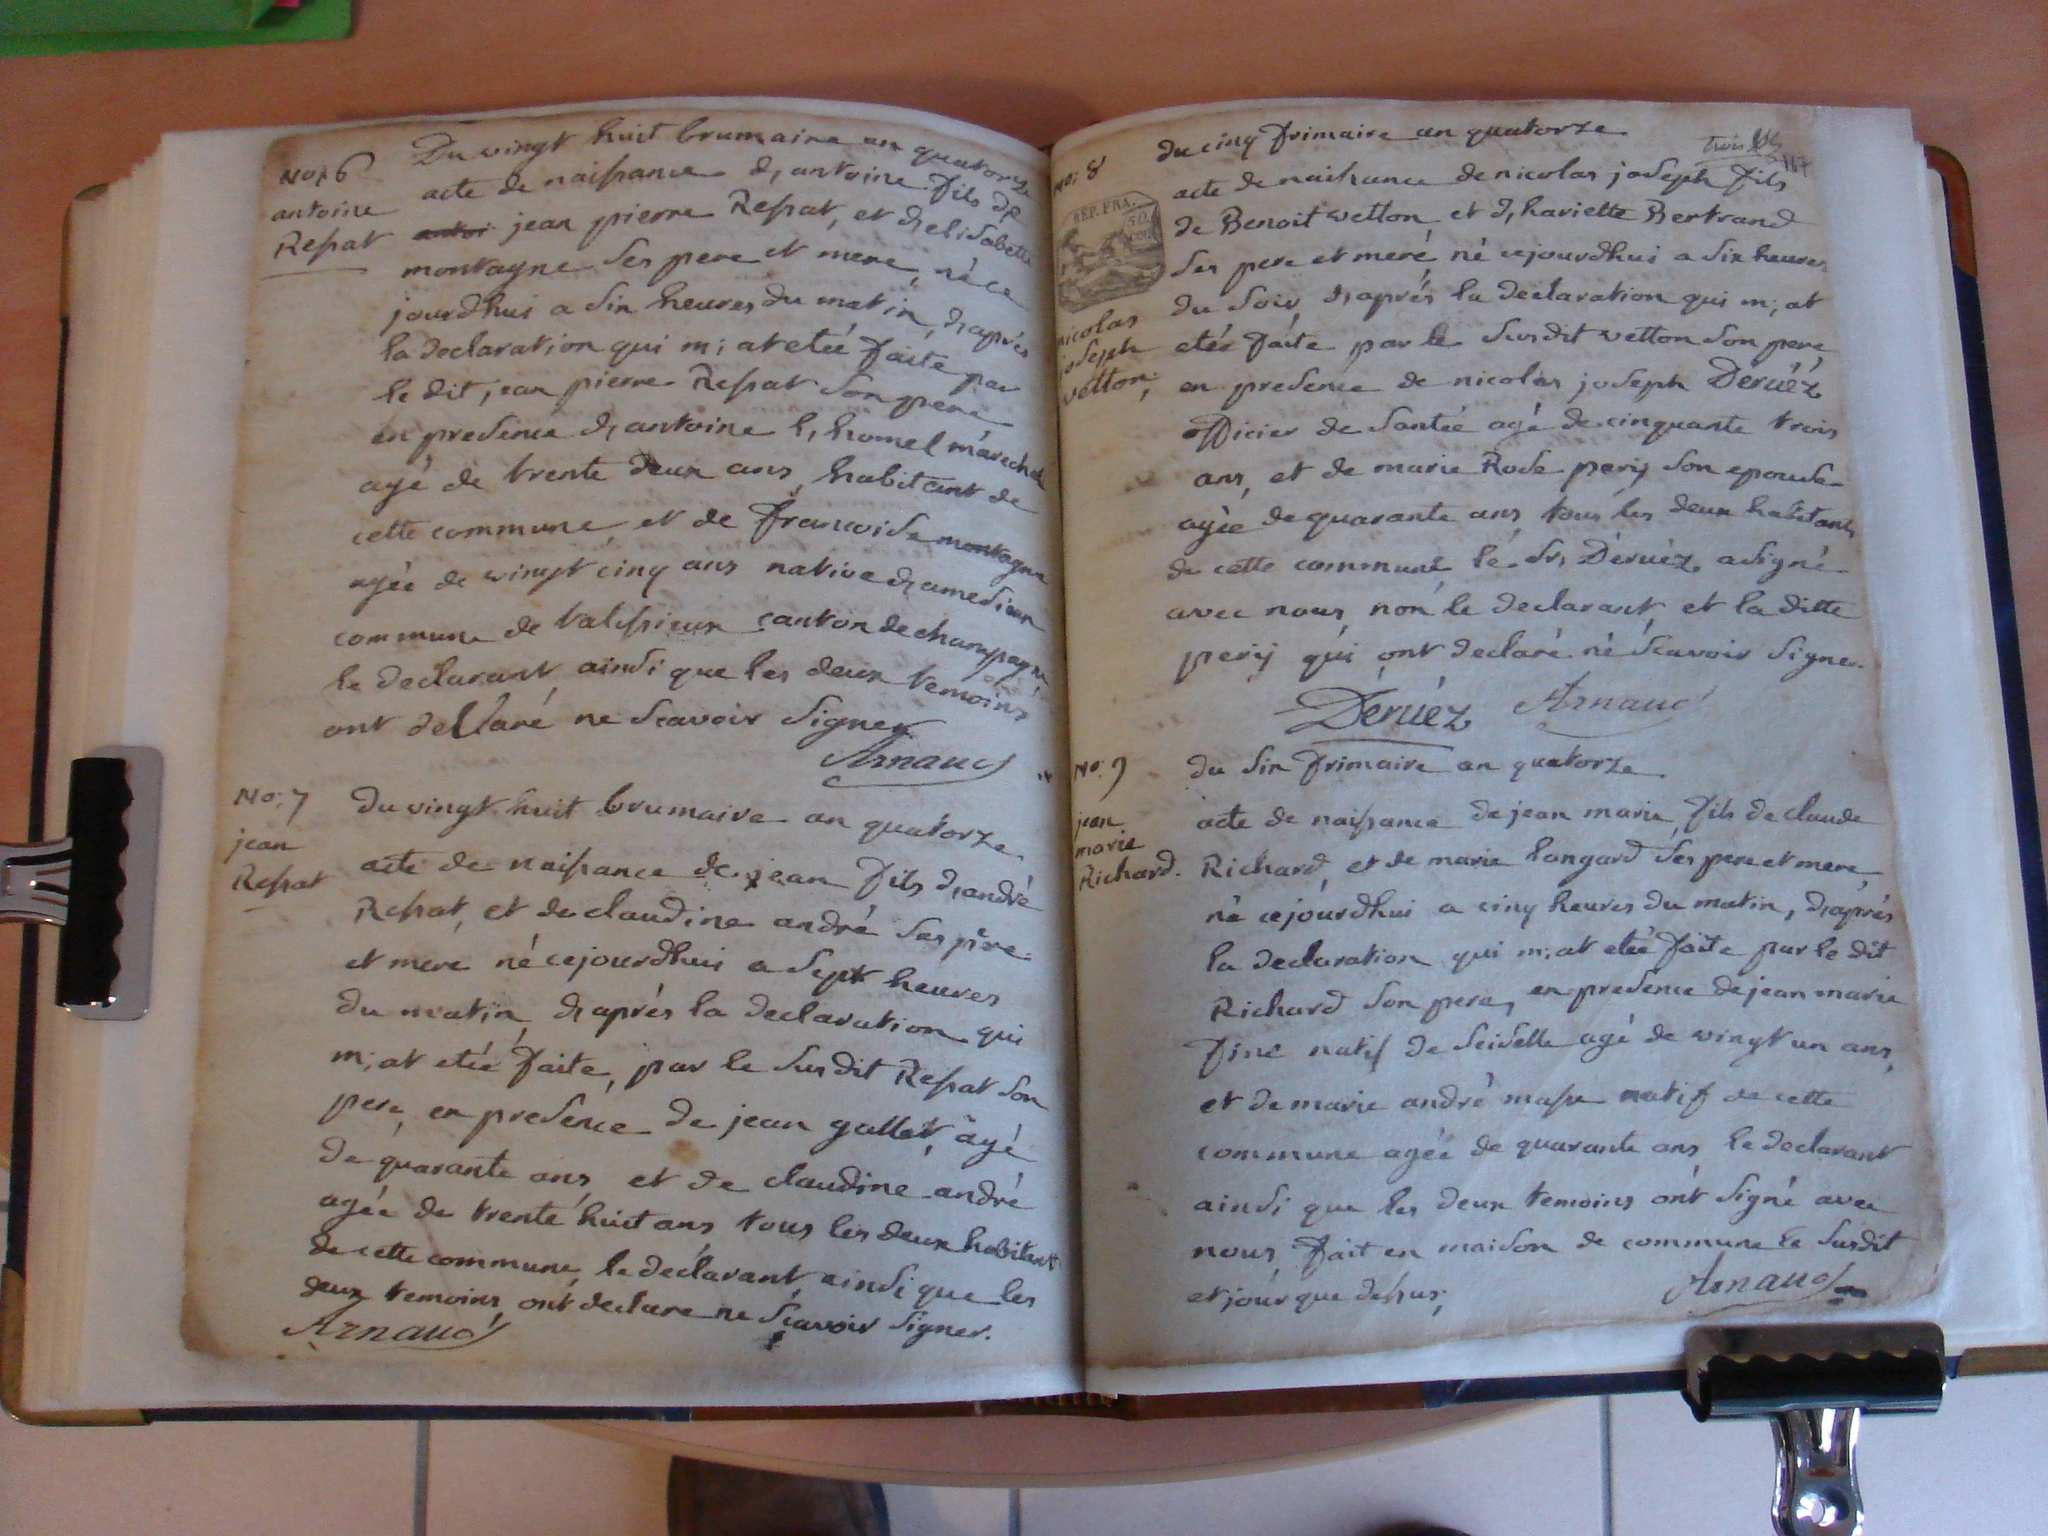 No; 6
antoine
Repat
Du vingt huit brumaire an quatorze
acte de naissance d, antoine fils de
antoi jean pierre Repat, et d, elisabette
montagne ses pere et mere, né ce
jourdhui a six heures du matin, d, aprés
la declaration qui m; at etée faite par
le dit, jean pierre Repat son pere
en presence d, antoine l, homel marechal
agé de trente deux ans, habitant de
cette commune, et de francoise montagne
agée de vingt cinq ans native d, amesieux
commune de talissieux canton de champagne
le declarant ainsi que les deux temoins
ont declaré ne scavoir signer
Arnaud
No; 7
jean
Repat
du vingt huit brumaire an quatorze
acte de naissance de jean fils d, andré
Repat, et de claudine andré ses pere
et mere né cejourdhui a sept heures
du matin, d, aprés la declaration qui
m; at etée faite, par le susdit Repat son
pere, en presence de jean gallet, agé
de quarante ans et de claudine andré
agée de trente huit ans tous les deux habitent
de cette commune, le declarant, ainsi que les
deux temoins, ont declare ne scavoir signer.
Arnaud
trois
167
No; 8
REP. FRA.
50.
nicolas
joseph
vetton;
du cinq frimaire an quatorze
acte de naissance de nicolas joseph fils
de Benoit vetton, et d, hariette Bertrand
ses pere et meré né cejourdhui a six heures
du soir, d, aprés la declaration qui m; at
etée faite par le susdit vetton son pere,
en presence de nicolas joseph Déruéz
officier de santée agé de cinquante trois
ans, et de marie Rose perij son epouse
agée de quarante ans, tous les deux habitans
de cette commune lé sr, Déruéz, a signé
avec nous, non le declarant, et la ditte
perij qui ont declaré né scavoir signer.
Déruéz Arnaud
No; 9
jean
marie
Richard.
du six frimaire an quatorze
acte de naissance de jean marie, fils de claude
Richard, et de marie longard ses pere et mere,
né cejourdhui a cinq heures du matin, d, aprés
la declaration qui m; at etée faite par le dit
Richard son pere, en presence de jean marie
fine natif de seiselle agé de vingt un ans,
et de marie andré masse natif de cette
commune agée de quarante ans, le declarant
ainsi que les deux temoins ont signé avec
nous, fait en maison de commune le susdit
et jour que dessus;
Arnaud